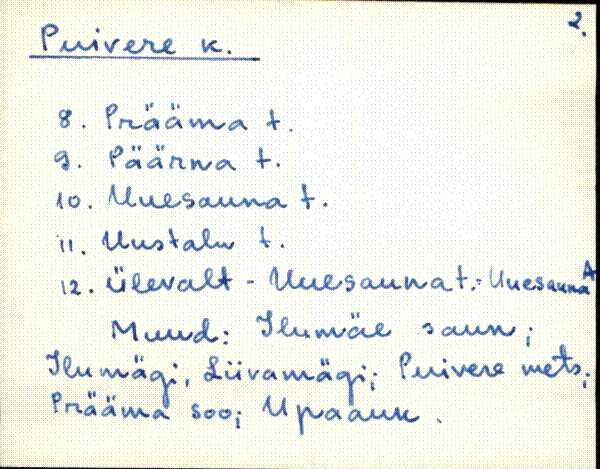 2.
Puivere k.
8. Prääma t.
9. Päärna t.
10. Uuesauna t.
11. Uustalu t.
12. Ülevalt - Uuesauna t. = Uuesauna A
Muud: Ilumäe saun;
Ilumägi, Liivamägi; Puivere mets;
Prääma soo; Upaauk.